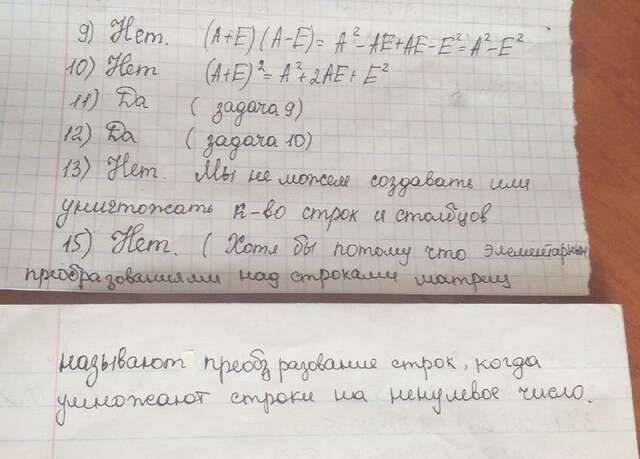 9) Нет. (A+E)(A-E)= A²-AE+AE-E²=A²-E²
10) Нет (A+E)²=A²+2AE+E²
11) Да ( задача 9)
12) Да ( задача 10)
13) Нет. Мы не можем создавать или
уничтожать к-во строк и столбцов
15) Нет. ( Хотя бы потому что элементарным
преобразованиями над строками матриц
называют преобразование строк, когда
умножают строки на ненулевое число.